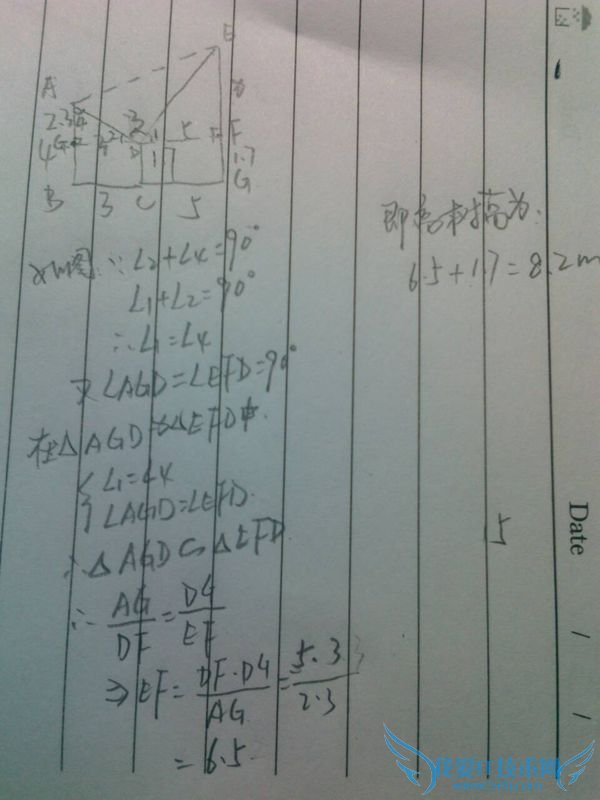 E
A
2.3
4
G
D
5
F
1.7
G
B
3
C
5
如图∵∠2+∠4=90°
∠1+∠2=90°
∴∠1=∠4
又∠AGD=∠EFD=90°
在△AGD与△EFD中
{∠1=∠4
∠AGD=∠EFD
∴△AGD∽△EFD
∴AG/DF=DG/EF
⇒EF=DF·DG/AG=5.3/2.3
=6.5
6.5+1.7=8.2m
5
Date
/
/